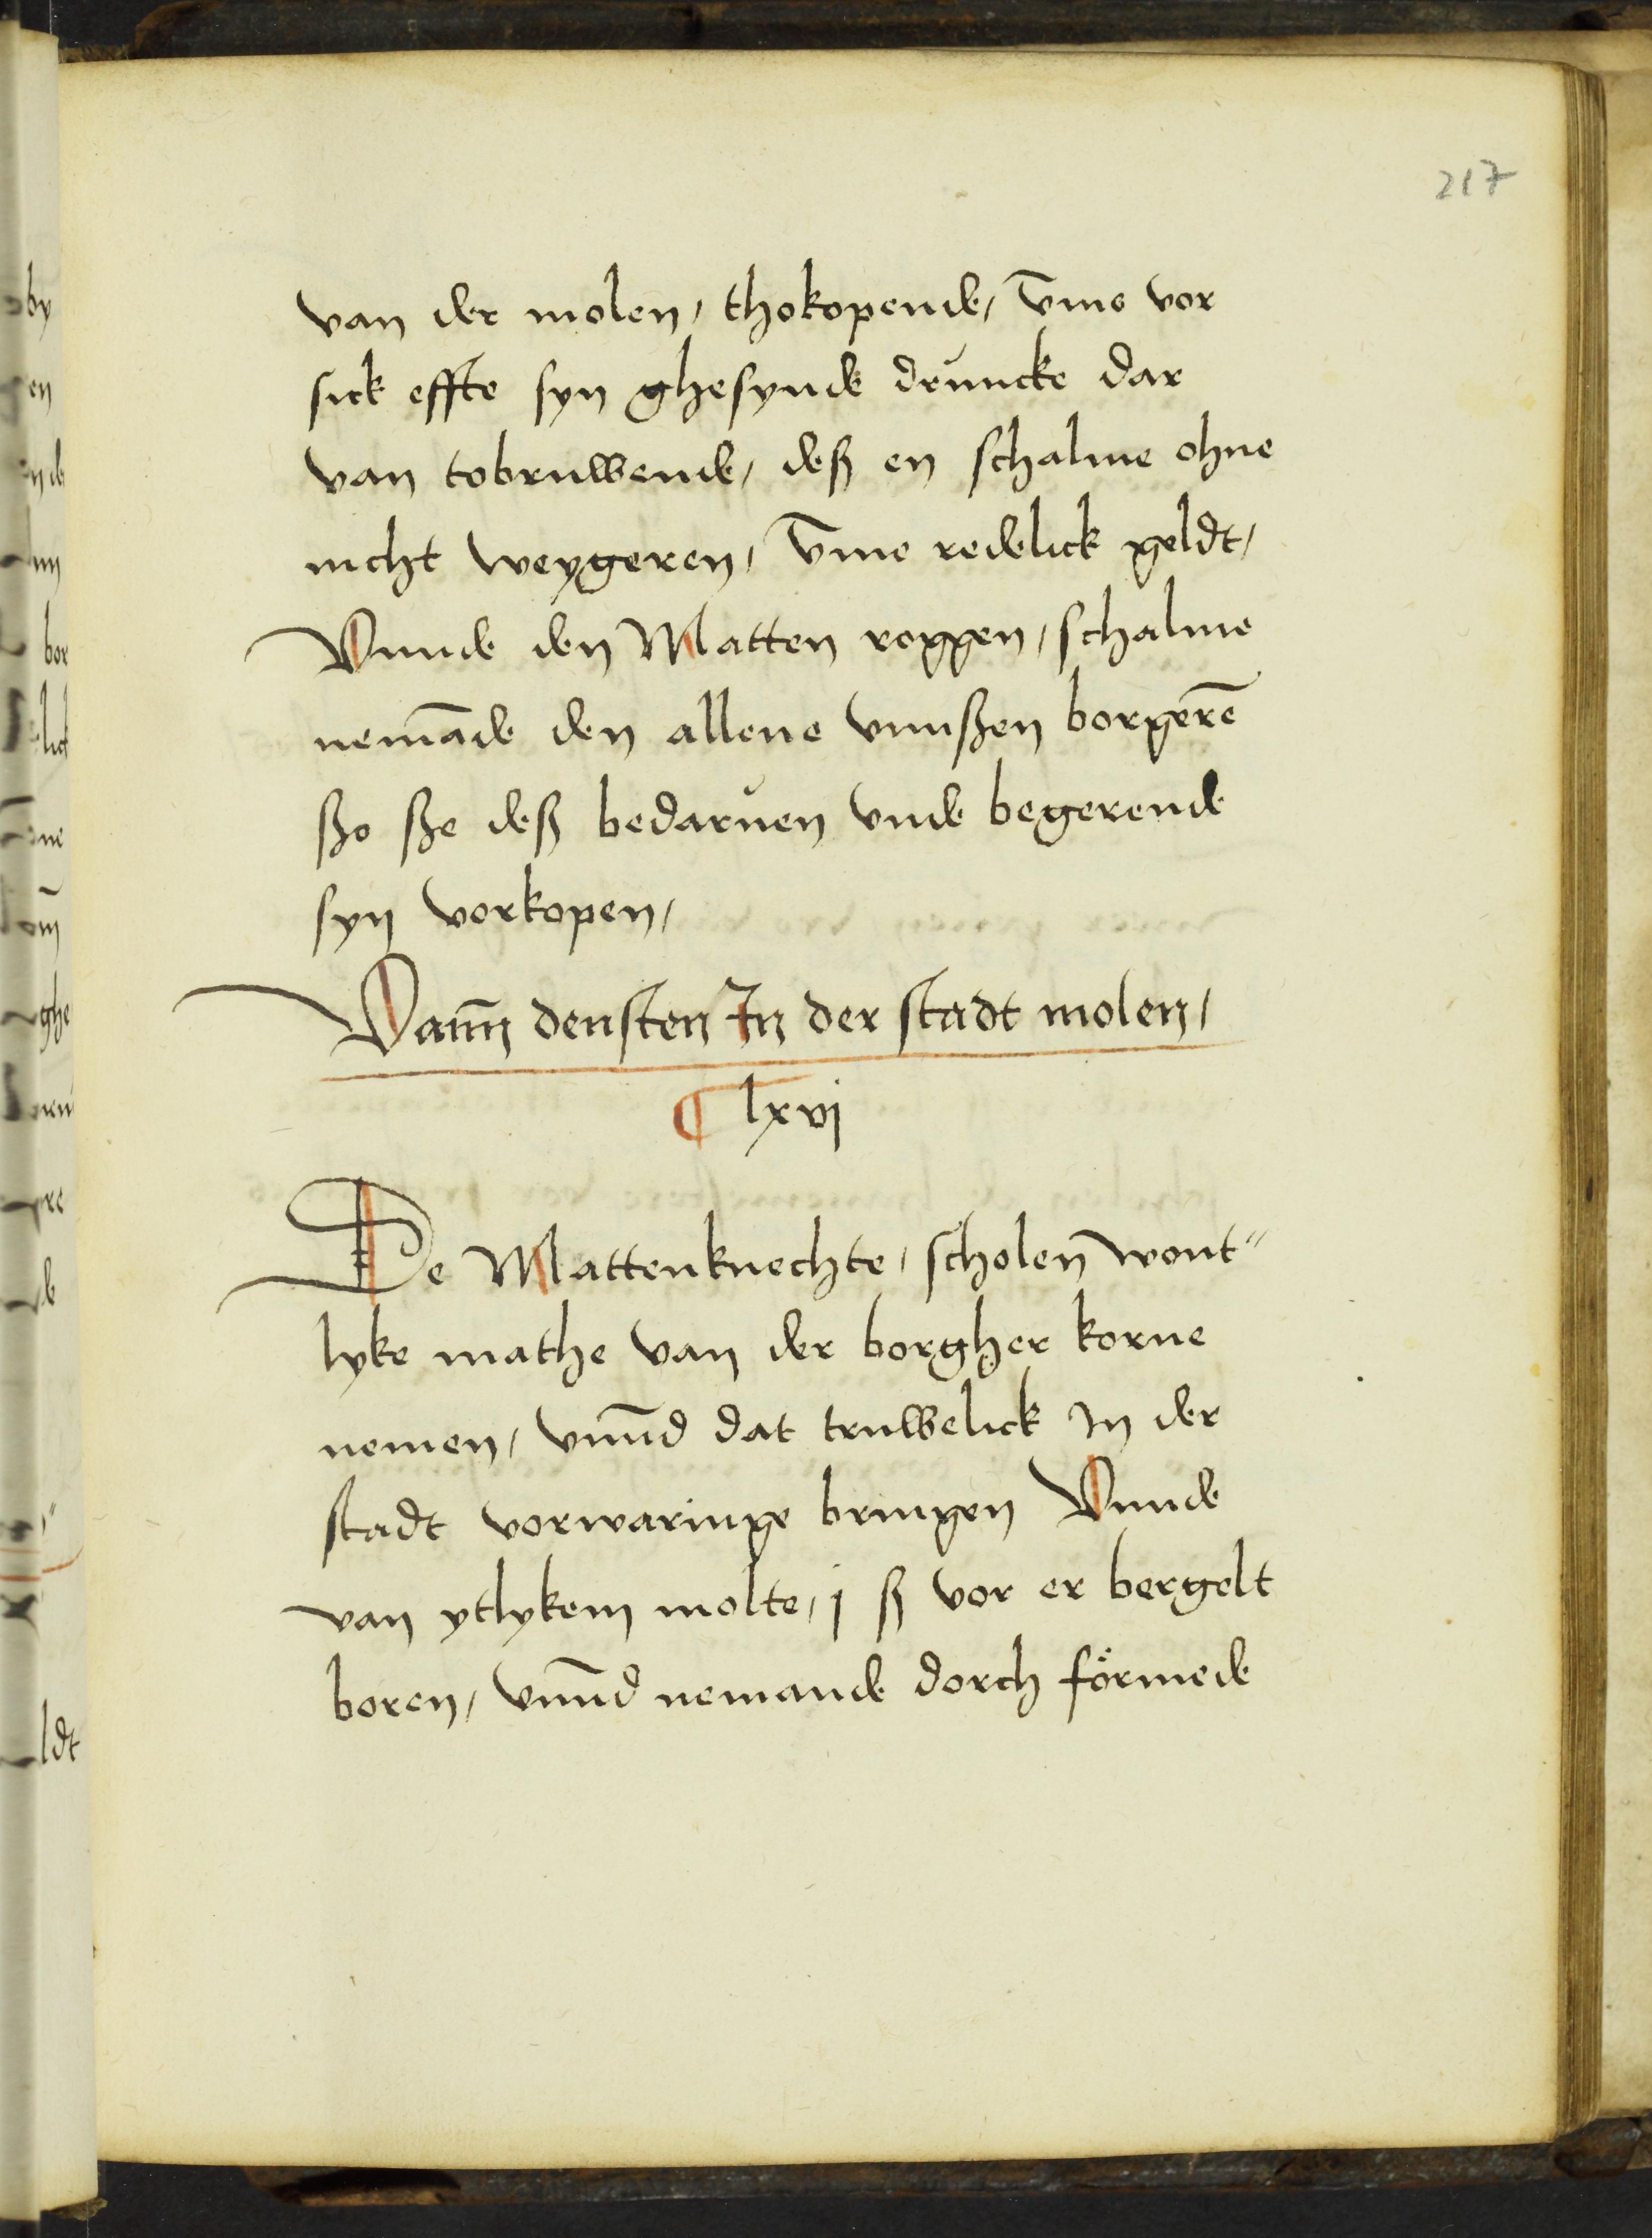 217
van der molen, thokopende, v̄me vor
sick effte syn ghesynde druncke dar
van tobruwende, deß en schalme ohne
nicht weygeren, v̄me redelick geldt,
Vnnde den Matten roggen, schalme
nemāde den allene vnnßen borgerē
ßo ße deß bedaruen vnde begerende
syn vorkopen,
Vann̄ densten In der stadt molen,
¶ lxvj
De Mattenknechte, scholen wont"
lyke mathe van der borgher korne
nemen, vnn̄d dat truwelick In der
stadt vorwaringe bringen Vnnde
van ytlykem molte, j ß vor er bergelt
boren, vnn̄d nemande dorch förmede